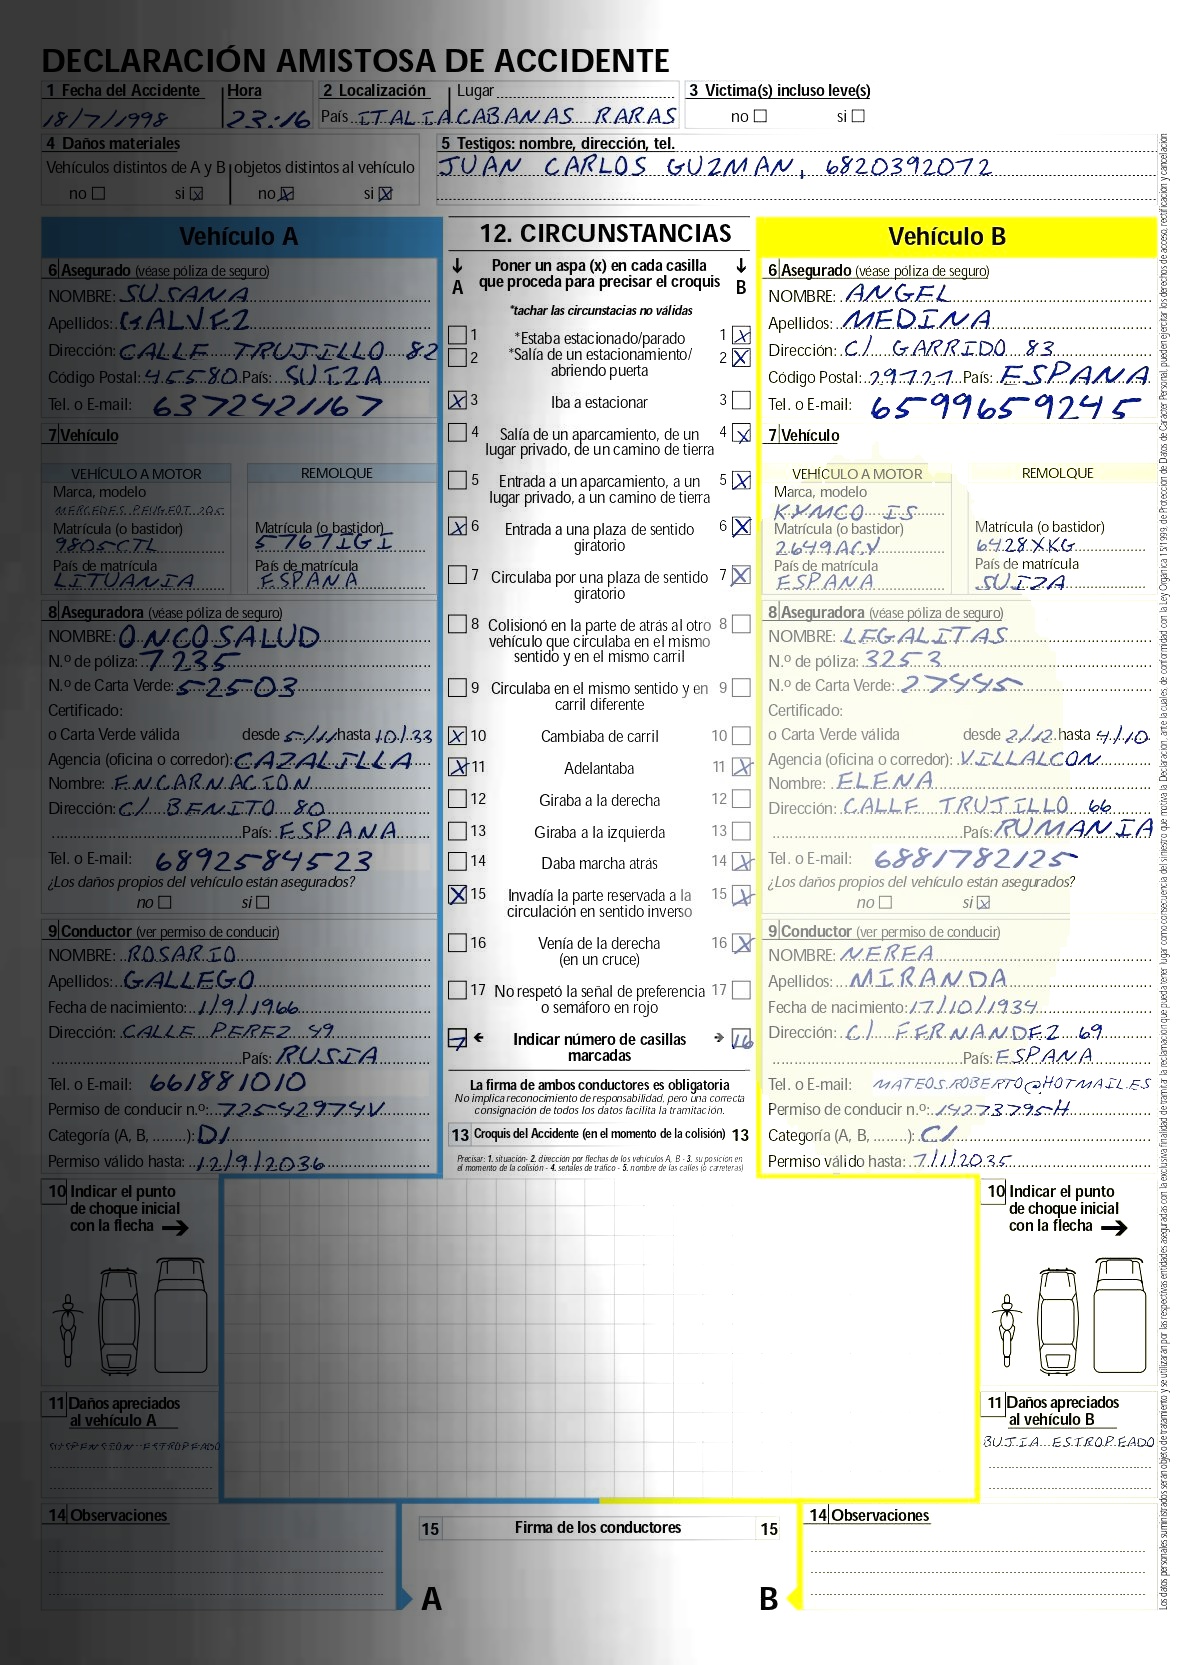 DECLARACIÓN AMISTOSA DE ACCIDENTE
1 Fecha del Accidente Hora 2 Localización Lugar 3 Victima(s) incluso leve(s)
18/7/1998 23:16 País ITALIA CABANAS RARAS no si
4 Daños materiales
Vehículos distintos de A y B objetos distintos al vehículo
no si no si
5 Testigos: nombre, dirección, tel.
JUAN CARLOS GUZMAN, 6820392072
Vehículo A
6 Asegurado (véase póliza de seguro)
NOMBRE: SUSANA
Apellidos: GALVEZ
Dirección: CALLE TRUJILLO 82
Código Postal: 45580 País: SUIZA
Tel. o E-mail: 6372421167
7 Vehículo
VEHÍCULO A MOTOR REMOLQUE
Marca, modelo
MERCEDES PEUGEOT 206
Matrícula (o bastidor) Matrícula (o bastidor)
9805CTL 5767IGI
País de matrícula País de matrícula
LITUANIA ESPANA
8 Aseguradora (véase póliza de seguro)
NOMBRE: ONCOSALUD
N.º de póliza: 7235
N.º de Carta Verde: 52503
Certificado:
o Carta Verde válida desde 5/11 hasta 10/33
Agencia (oficina o corredor): CAZALILLA
Nombre: ENCARNACION
Dirección: C/ BENITO 80
País: ESPANA
Tel. o E-mail: 6892584523
¿Los daños propios del vehículo están asegurados?
no si
9 Conductor (ver permiso de conducir)
NOMBRE: ROSARIO
Apellidos: GALLEGO
Fecha de nacimiento: 1/9/1966
Dirección: CALLE PEREZ 49
País: RUSIA
Tel. o E-mail: 661881010
Permiso de conducir n.º: 72542974V
Categoría (A, B, ........): D1
Permiso válido hasta: 12/9/2036
12. CIRCUNSTANCIAS
A Poner un aspa (x) en cada casilla que proceda para precisar el croquis B
*tachar las circunstacias no válidas
1 *Estaba estacionado/parado 1
2 *Salía de un estacionamiento/ 2
abriendo puerta
3 Iba a estacionar 3
4 Salía de un aparcamiento, de un 4
lugar privado, de un camino de tierra
5 Entrada a un aparcamiento, a un 5
lugar privado, a un camino de tierra
6 Entrada a una plaza de sentido 6
giratorio
7 Circulaba por una plaza de sentido 7
giratorio
8 Colisionó en la parte de atrás al otro 8
vehículo que circulaba en el mismo
sentido y en el mismo carril
9 Circulaba en el mismo sentido y en 9
carril diferente
10 Cambiaba de carril 10
11 Adelantaba 11
12 Giraba a la derecha 12
13 Giraba a la izquierda 13
14 Daba marcha atrás 14
15 Invadía la parte reservada a la 15
circulación en sentido inverso
16 Venía de la derecha 16
(en un cruce)
17 No respetó la señal de preferencia 17
o semáforo en rojo
7 Indicar número de casillas 16
marcadas
La firma de ambos conductores es obligatoria
No implica reconocimiento de responsabilidad, pero una correcta
consignación de todos los datos facilita la tramitación.
13 Croquis del Accidente (en el momento de la colisión) 13
Precisar: 1. situación- 2. dirección por flechas de los vehículos A, B - 3. su posición en
el momento de la colisión - 4. señales de tráfico - 5. nombre de las calles (o carreteras)
Vehículo B
6 Asegurado (véase póliza de seguro)
NOMBRE: ANGEL
Apellidos: MEDINA
Dirección: C/ GARRIDO 83
Código Postal: 29727 País: ESPANA
Tel. o E-mail: 65996659245
7 Vehículo
VEHÍCULO A MOTOR REMOLQUE
Marca, modelo
KYMCO IS
Matrícula (o bastidor) Matrícula (o bastidor)
2649ACV 6428XKG
País de matrícula País de matrícula
ESPANA SUIZA
8 Aseguradora (véase póliza de seguro)
NOMBRE: LEGALITAS
N.º de póliza: 3253
N.º de Carta Verde: 27445
Certificado:
o Carta Verde válida desde 2/12 hasta 4/10
Agencia (oficina o corredor): VILLALCON
Nombre: ELENA
Dirección: CALLE TRUJILLO 66
País: RUMANIA
Tel. o E-mail: 6881782125
¿Los daños propios del vehículo están asegurados?
no si
9 Conductor (ver permiso de conducir)
NOMBRE: NEREA
Apellidos: MIRANDA
Fecha de nacimiento: 17/10/1934
Dirección: C/ FERNANDEZ 69
País: ESPANA
Tel. o E-mail: MATEOS.ROBERTO@HOTMAIL.ES
Permiso de conducir n.º: 14273795H
Categoría (A, B, ........): C1
Permiso válido hasta: 7/1/2035
10 Indicar el punto
de choque inicial
con la flecha
10 Indicar el punto
de choque inicial
con la flecha
11 Daños apreciados
al vehículo A
SUSPENSION ESTROPEADO
11 Daños apreciados
al vehículo B
BUJIA ESTROPEADO
14 Observaciones
15 Firma de los conductores 15
14 Observaciones
A B